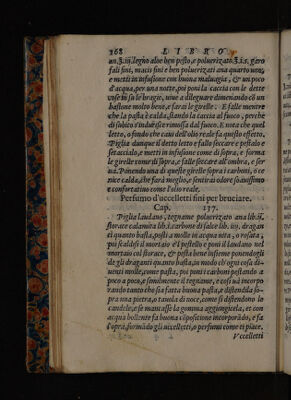 268 LIBRO
un.ʒ.iij. legno aloe ben pesto, e poluerizato .ʒ.i.s. garo
fali fini, macis fini e ben poluerizati ana quarto uno,
e metti in infusione con buona maluagia, & un poco
d'acqua, per una notte, poi poni la caccia con le dette
cose in su le bragie, uiue a dileguare dimenando cō un
bastone molto bene, e farai le girelle. E falle mentre
che la pasta è calda, stando la caccia al fuoco, perche
di subito s'indurisce rimossa dal fuoco. E nota che quel
letto, o fondo che caui dell'olio reale fa questo effetto.
Piglia dunque il detto letto e fallo seccare e pestalo e
setaccialo, e metti in infusione come di sopra, e forma
le girelle come disopra, e falle seccare all'ombra, e ser
ua. Ponendo una di queste girelle sopra i carboni, o ce
nice calda, che sarà meglio, e sentirai odore soauissimo
e confortatiuo come l'olio reale.
Perfumo d'uccelletti fini per bruciare.
Cap. 217.
Piglia laudano, tegname poluerizato ana lib.ij.
storace calamita lib.i. carbone di salce lib. iiij. draganti
quanto basta, posti a molle in acqua nota, o rosata,
poi scaldisi il mortaio e'l pestello e poni il laudano nel
mortaio col storace, & pesta bene insieme ponendogli
de gli draganti quanto basta, in modo ch'ogni cosa di-
uenti molle, come pasta, poi poni i carboni pestando a
poco a poco, e similmente il tegname, e cosi uà incorpo
rando tanto che sia fatta buona pasta, e distendila so-
pra una pietra, o tauola di noce, come si distendono le
candele, e se mancasse la gomma aggiungiela, et con
acqua bollente fa buona cōpositione incorporādo, e fa
sopra, formādo gli uccelletti, e perfumi come ti piace.
Vccelletti